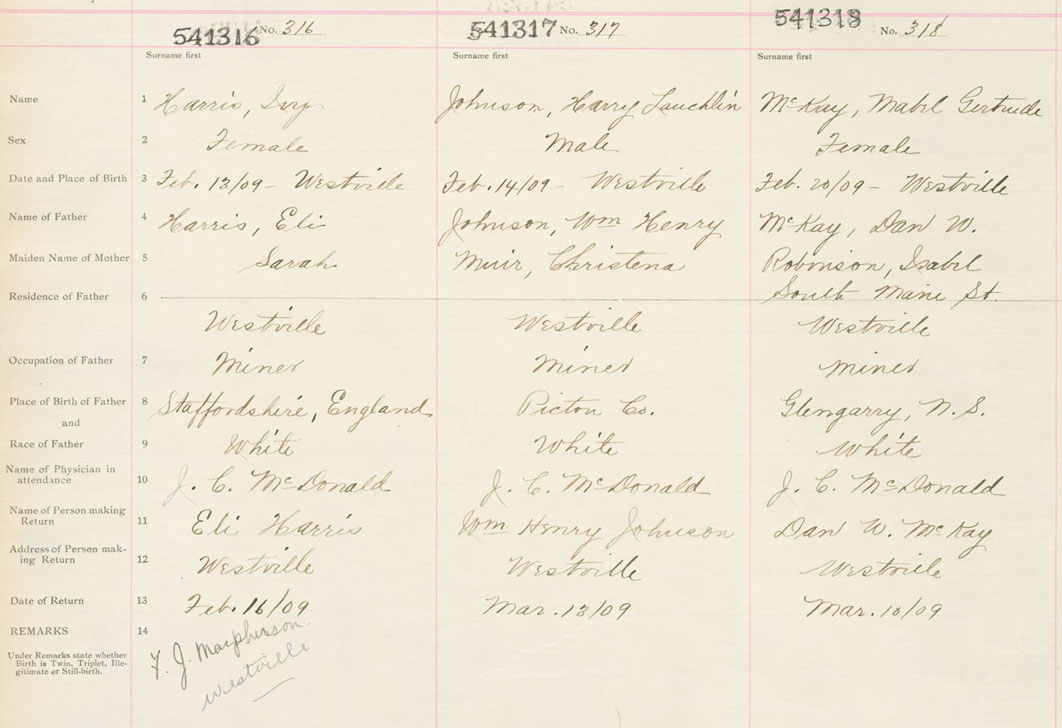 541316 No. 316 541317 No. 317 541318 No. 318
Surname first Surname first Surname first
Name 1 Harris, Ivy Johnson, Harry Lauchlin McKay, Mabel Gertrude
Sex 2 Female Male Female
Date and Place of Birth 3 Feb. 13/09 - Westville Feb. 14/09 - Westville Feb. 20/09 - Westville
Name of Father 4 Harris, Eli Johnson, Wm Henry McKay, Dan W.
Maiden Name of Mother 5 Sarah Muir, Christena Robinson, Isabel
Residence of Father 6 South Main St.
Westville Westville Westville
Occupation of Father 7 Miner Miner Miner
Place of Birth of Father 8 Staffordshire, England Pictou Co. Glengarry, N.S.
and
Race of Father 9 White White White
Name of Physician in
attendance 10 J. C. McDonald J. C. McDonald J. C. McDonald
Name of Person making
Return 11 Eli Harris Wm Henry Johnson Dan W. McKay
Address of Person mak-
ing Return 12 Westville Westville Westville
Date of Return 13 Feb. 16/09 Mar. 13/09 Mar. 10/09
REMARKS 14
Under Remarks state whether
Birth is Twin, Triplet, Ille-
gitimate or Still-birth.
F. J. Macpherson.
Westville